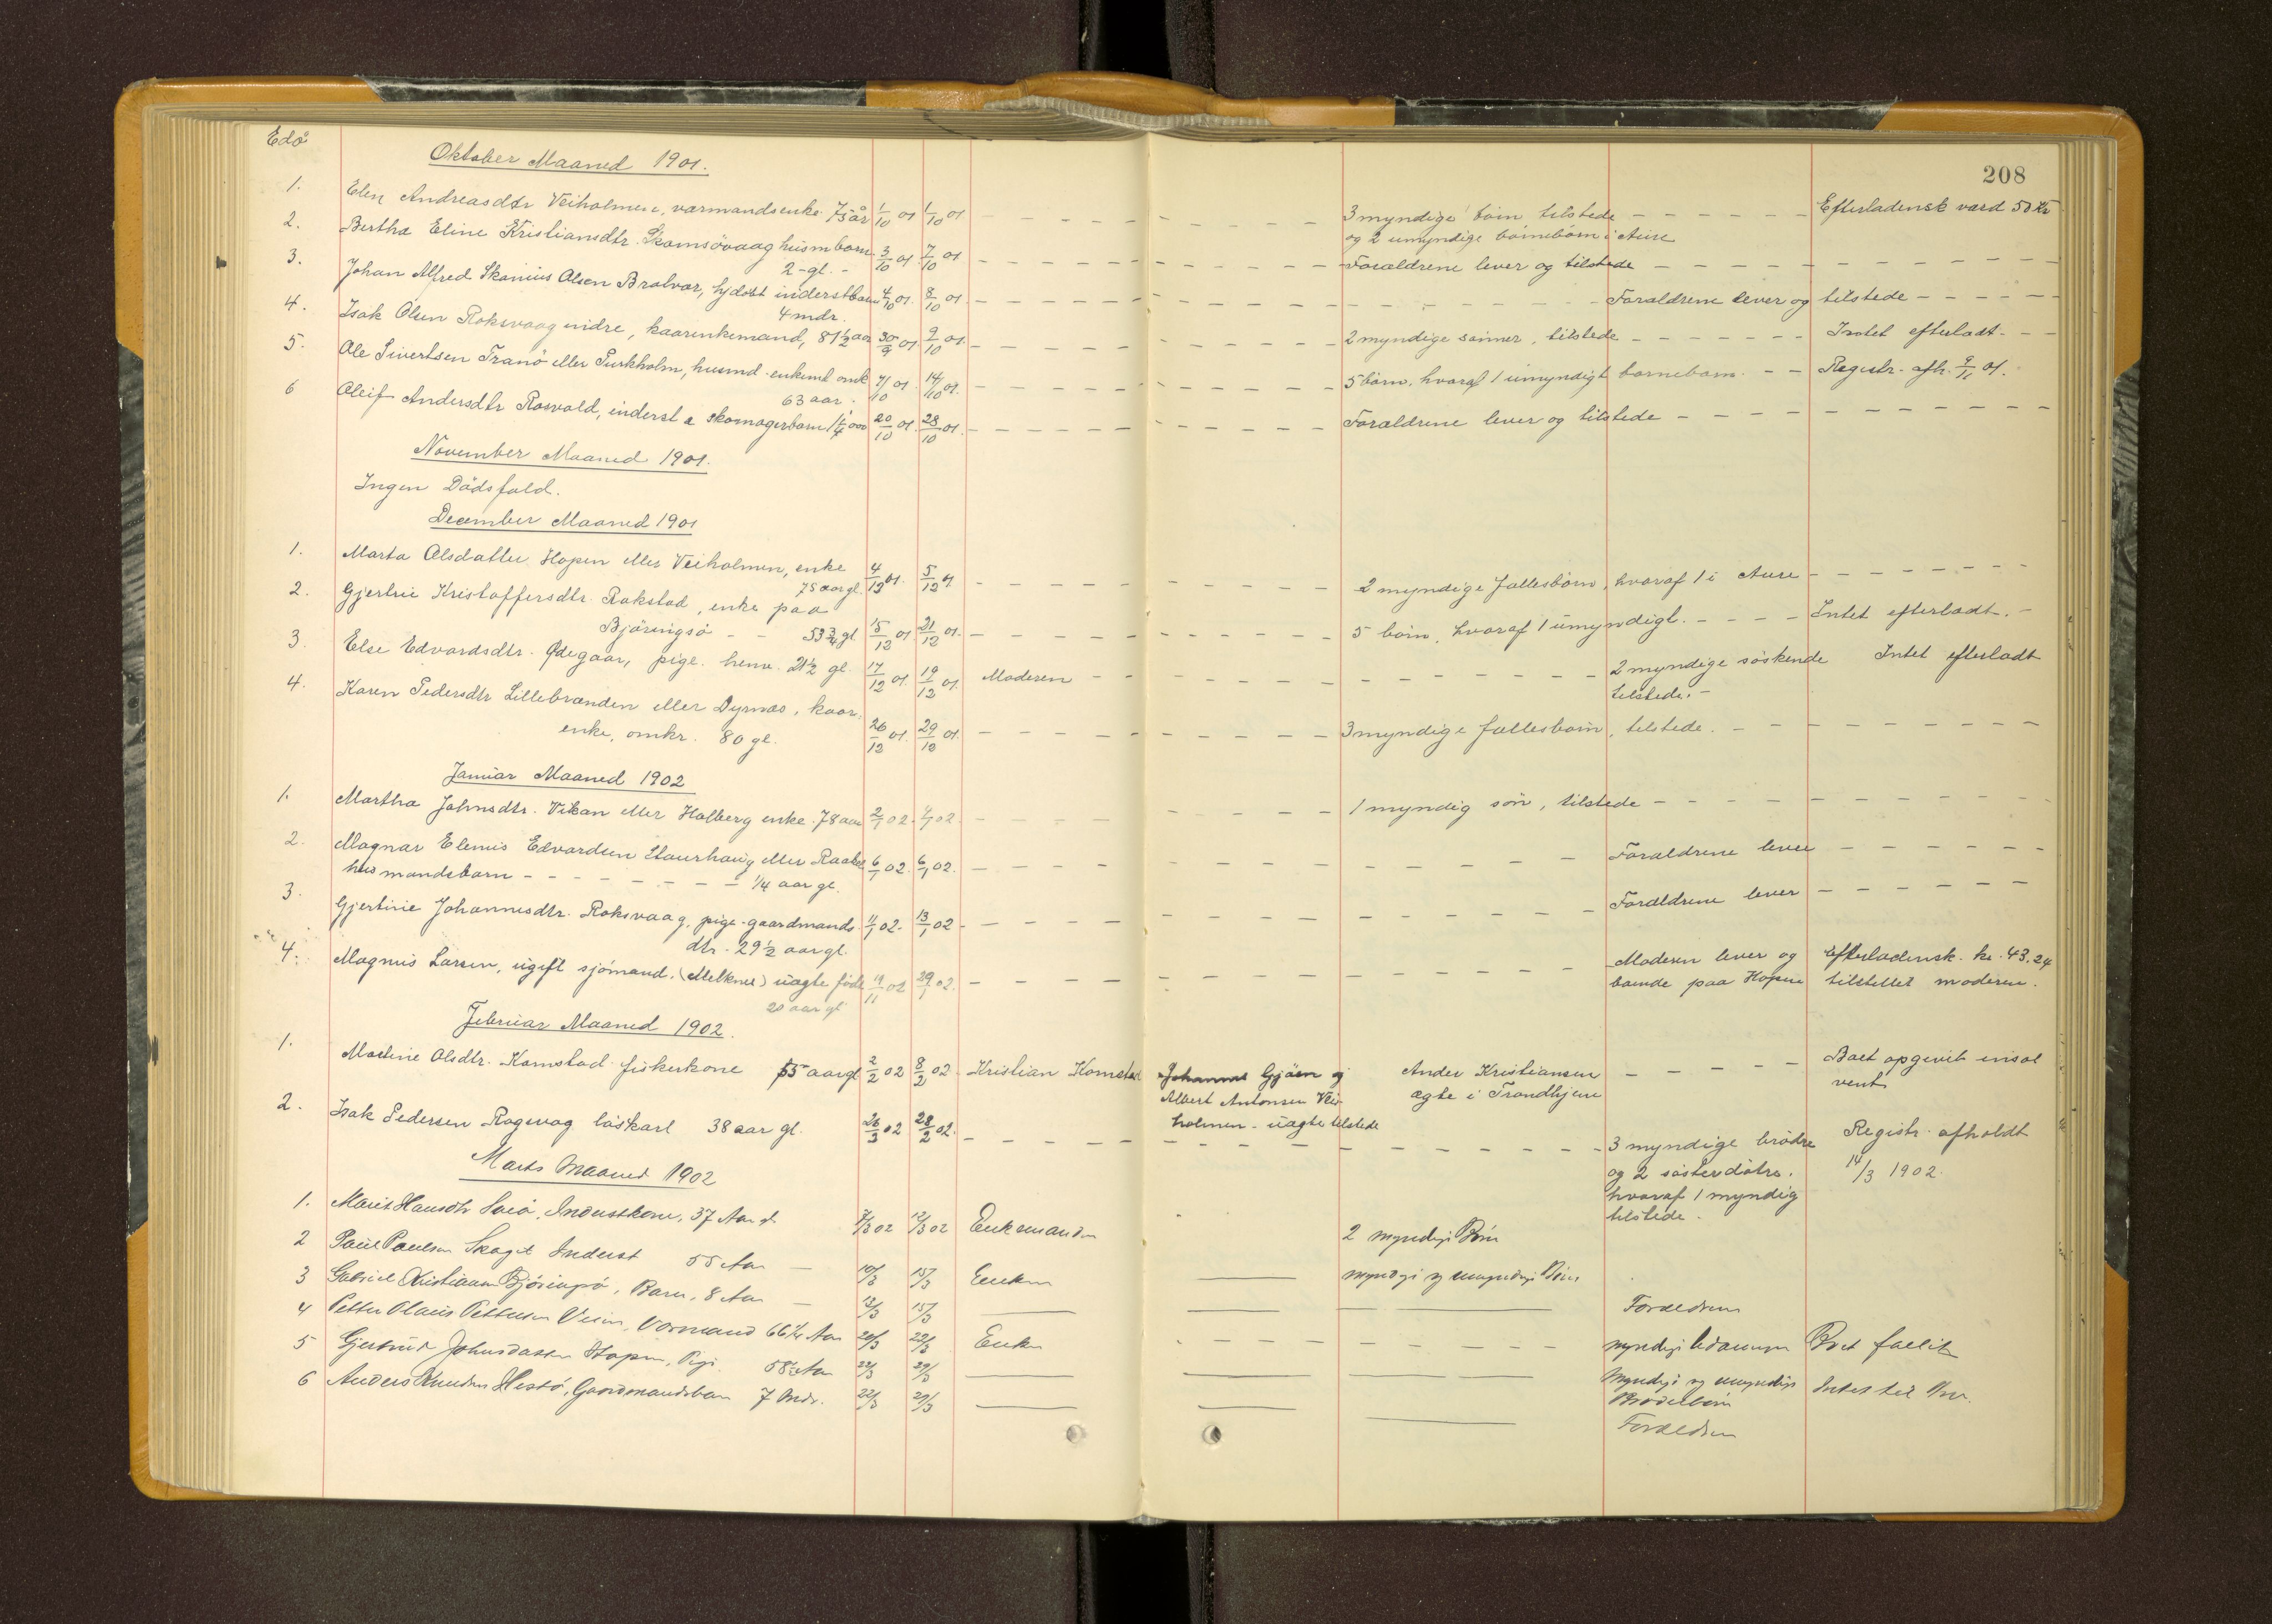 Edö
208
Oktober Maaned 1901.
1. Elen Andreasdtr Veiholmen, varmandsenke 75 år 1/10 01 1/10 01 3 myndige börn tilstede Efterladensk værd 50 Kr
og 2 umyndige börnebörn i Aure
2. Bertha Eline Kristiansdtr. Skomsövaag husm barn 3/10 01 7/10 01 Forældrene lever og tilstede
2 - gl. -
3. Johan Alfred Skanius Olsen Bratvær, hjdöbt inderstbarn 4/10 01. 8/10 01 Forældrene lever og tilstede
4 mdr.
4. Isak Olsen Roksvaag nidre, kaarenkemand, 81 1/2 aar 30/9 01 9/10 01. 2 myndige sönner, tilstede Intet efterladt
5. Ole Sivertsen Tranö eller Purkholm, husmd - enkemd omk 7/10 01 14/10 01. 5 börn, hvoraf 1 umyndigt barnebarn. Registr. afh. 9/11 01.
63 aar.
6 Oleif Andersdtr Rosvold, inderst & skomagerbarn 1 1/4 20/10 01. 28/10 01. Forældrene lever og tilstede
November Maaned 1901.
Ingen Dödsfald.
December Maaned 1901
1. Marta Olsdatter Hopen eller Veiholmen, enke 4/12 01. 5/12 01 2 myndige fællesbörn, hvoraf 1 i Aure
75 aar gl.
2. Gjertrie Kristoffersdtr. Rokstad, enke paa
Björingsö - - 53 3/4 gl 15/12 01 21/12 01. 5 börn, hvoraf 1 umyndigt. Intet efterladt.
3 Else Edvardsdtr. Ødegaar, pige. henv. 21 1/2 gl. 17/12 01. 19/12 01. Moderen 2 myndige söskende Intet efterladt
tilstede.
4. Karen Pedersdtr Lillebrænden eller Dyrnæs, kaar
enke, omkr. 80 gl. 26/12 01. 29/12 01. 3 myndige fællesbörn, tilstede.
Januar Maaned 1902
1. Martha Johnsdtr. Vikan eller Holberg enke. 78 aar 2/1 02. 4/1 02. 1 myndig sön, tilstede
2. Magnar Elenius Edvardsen Staurhaug eller 6/1 02. 6/1 02. Forældrene lever
husmandsbarn 1/4 aar gl.
3. Gjertine Johannesdtr. Roksvaag, pige - gaardmands 11/1 02. 13/1 02 Forældrene lever
dtr - 29 1/2 aar gl.
4. Magnus Larsen, ugift sjömand. (Melkner) uægte föd 19/11 02 29/1 02. Moderen lever og Efterladensk. kr. 43.24
20 aar gl boende paa Hopen tilstillet moderen.
Februar Maaned 1902.
1. Martine Olsdtr. Komstad fiskerkone 55 aar gl 2/2 02 8/2 02 Kristian Komstad Johannes Gjöen og Ander Kristiansen Boet opgivit insol
Albert Antonsen Vei- ægte i Trondhjem vent
holmen - uægte tilstede
2. Isak Pedersen Rogsvog löskarl 38 aar gl. 26/3 02 28/2 02. 3 myndige brödre Registr. afholdt
og 2 sösterdötre. 14/3 1902.
hvoraf 1 myndig
tilstede.
Marts Maaned 1902
1. Marit Hansdtr, Inderstkone, 37 Aar gl. 7/3 02 12/3 02 Enkemanden 2 myndige Börn
2 Paul Paulsen Skaget Inderst 55 Aar 10/3 15/3 Enken myndige og umyndige Börn
3 Gabriel Kristiansen Björingsö, Barn, 8 Aar 13/3 15/3 Forældren
4 Petter Olaus Pettersen Veien, Vormand 66 1/2 Aar 20/3 22/3 Enken myndige Udarvinger Boet fallit
5 Gjertrud Johnsdatter Hopen, Pige. 58 1/2 Aar 22/3 29/3 Myndige og umyndige Intet til Arv.
Broderbörn
6 Anders Knudsen Hestö, Gaardmandsbarn 7 Mdr. 22/3 29/3 Forældren